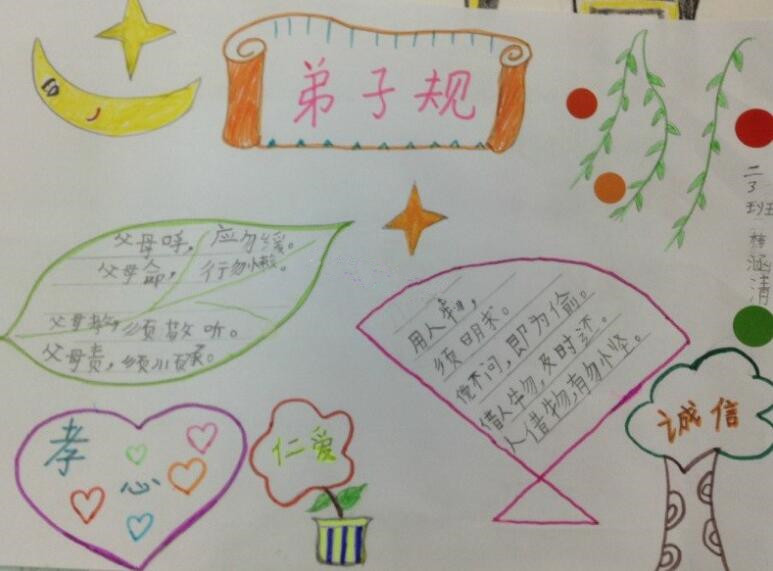 弟子规
二
3
班
桂
涵
清
父母呼，应勿缓。
父母命，行勿懒。
父母教，须敬听。
父母责，须顺承。
用人物，
须明求。
倘不问，即为偷。
借人物，及时还。
人借物，有勿小怪。
孝
心
仁爱
诚信